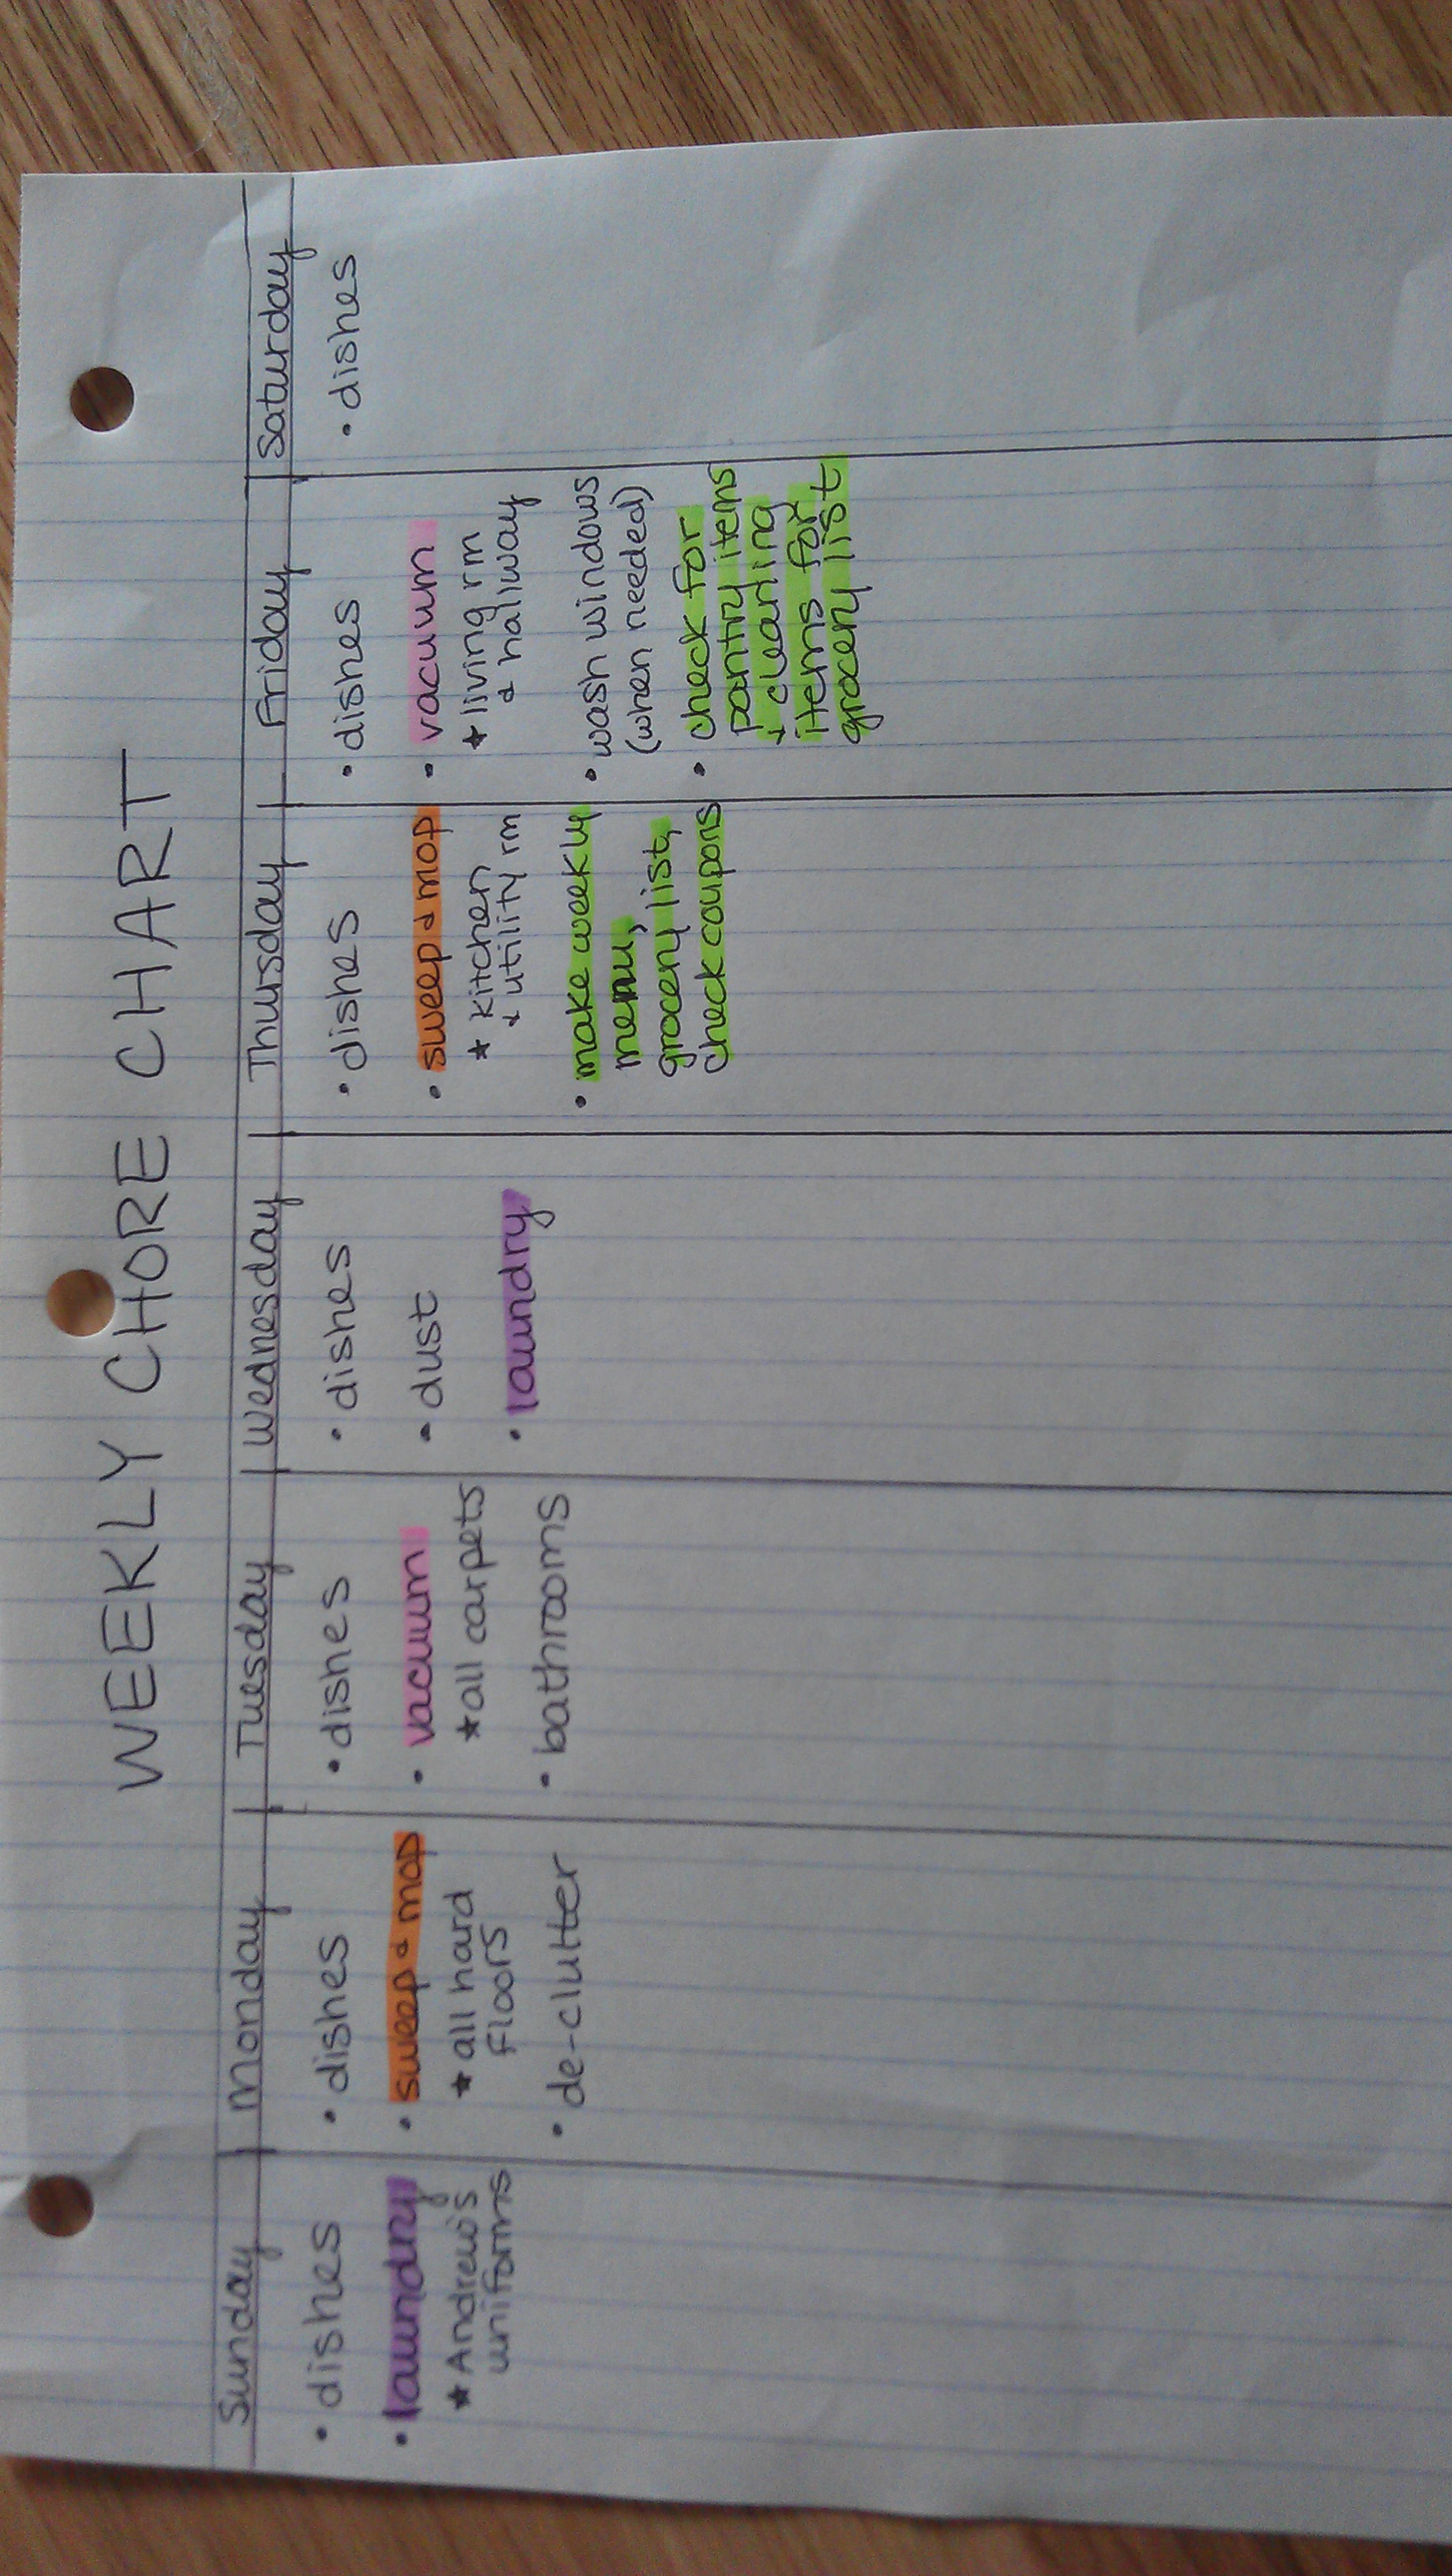 WEEKLY CHORE CHART
Sunday
• dishes
• laundry
★ Andrew's
uniforms
Monday
• dishes
• sweep & mop
★ all hard
floors
• de-clutter
Tuesday
• dishes
• vacuum
★ all carpets
• bathrooms
Wednesday
• dishes
• dust
• laundry
Thursday
• dishes
• sweep & mop
★ kitchen
& utility rm
• make weekly
menu,
grocery list,
check coupons
Friday
• dishes
• vacuum
★ living rm
& hallway
• wash windows
(when needed)
• check for
pantry items
+ cleaning
items for
grocery list
Saturday
• dishes